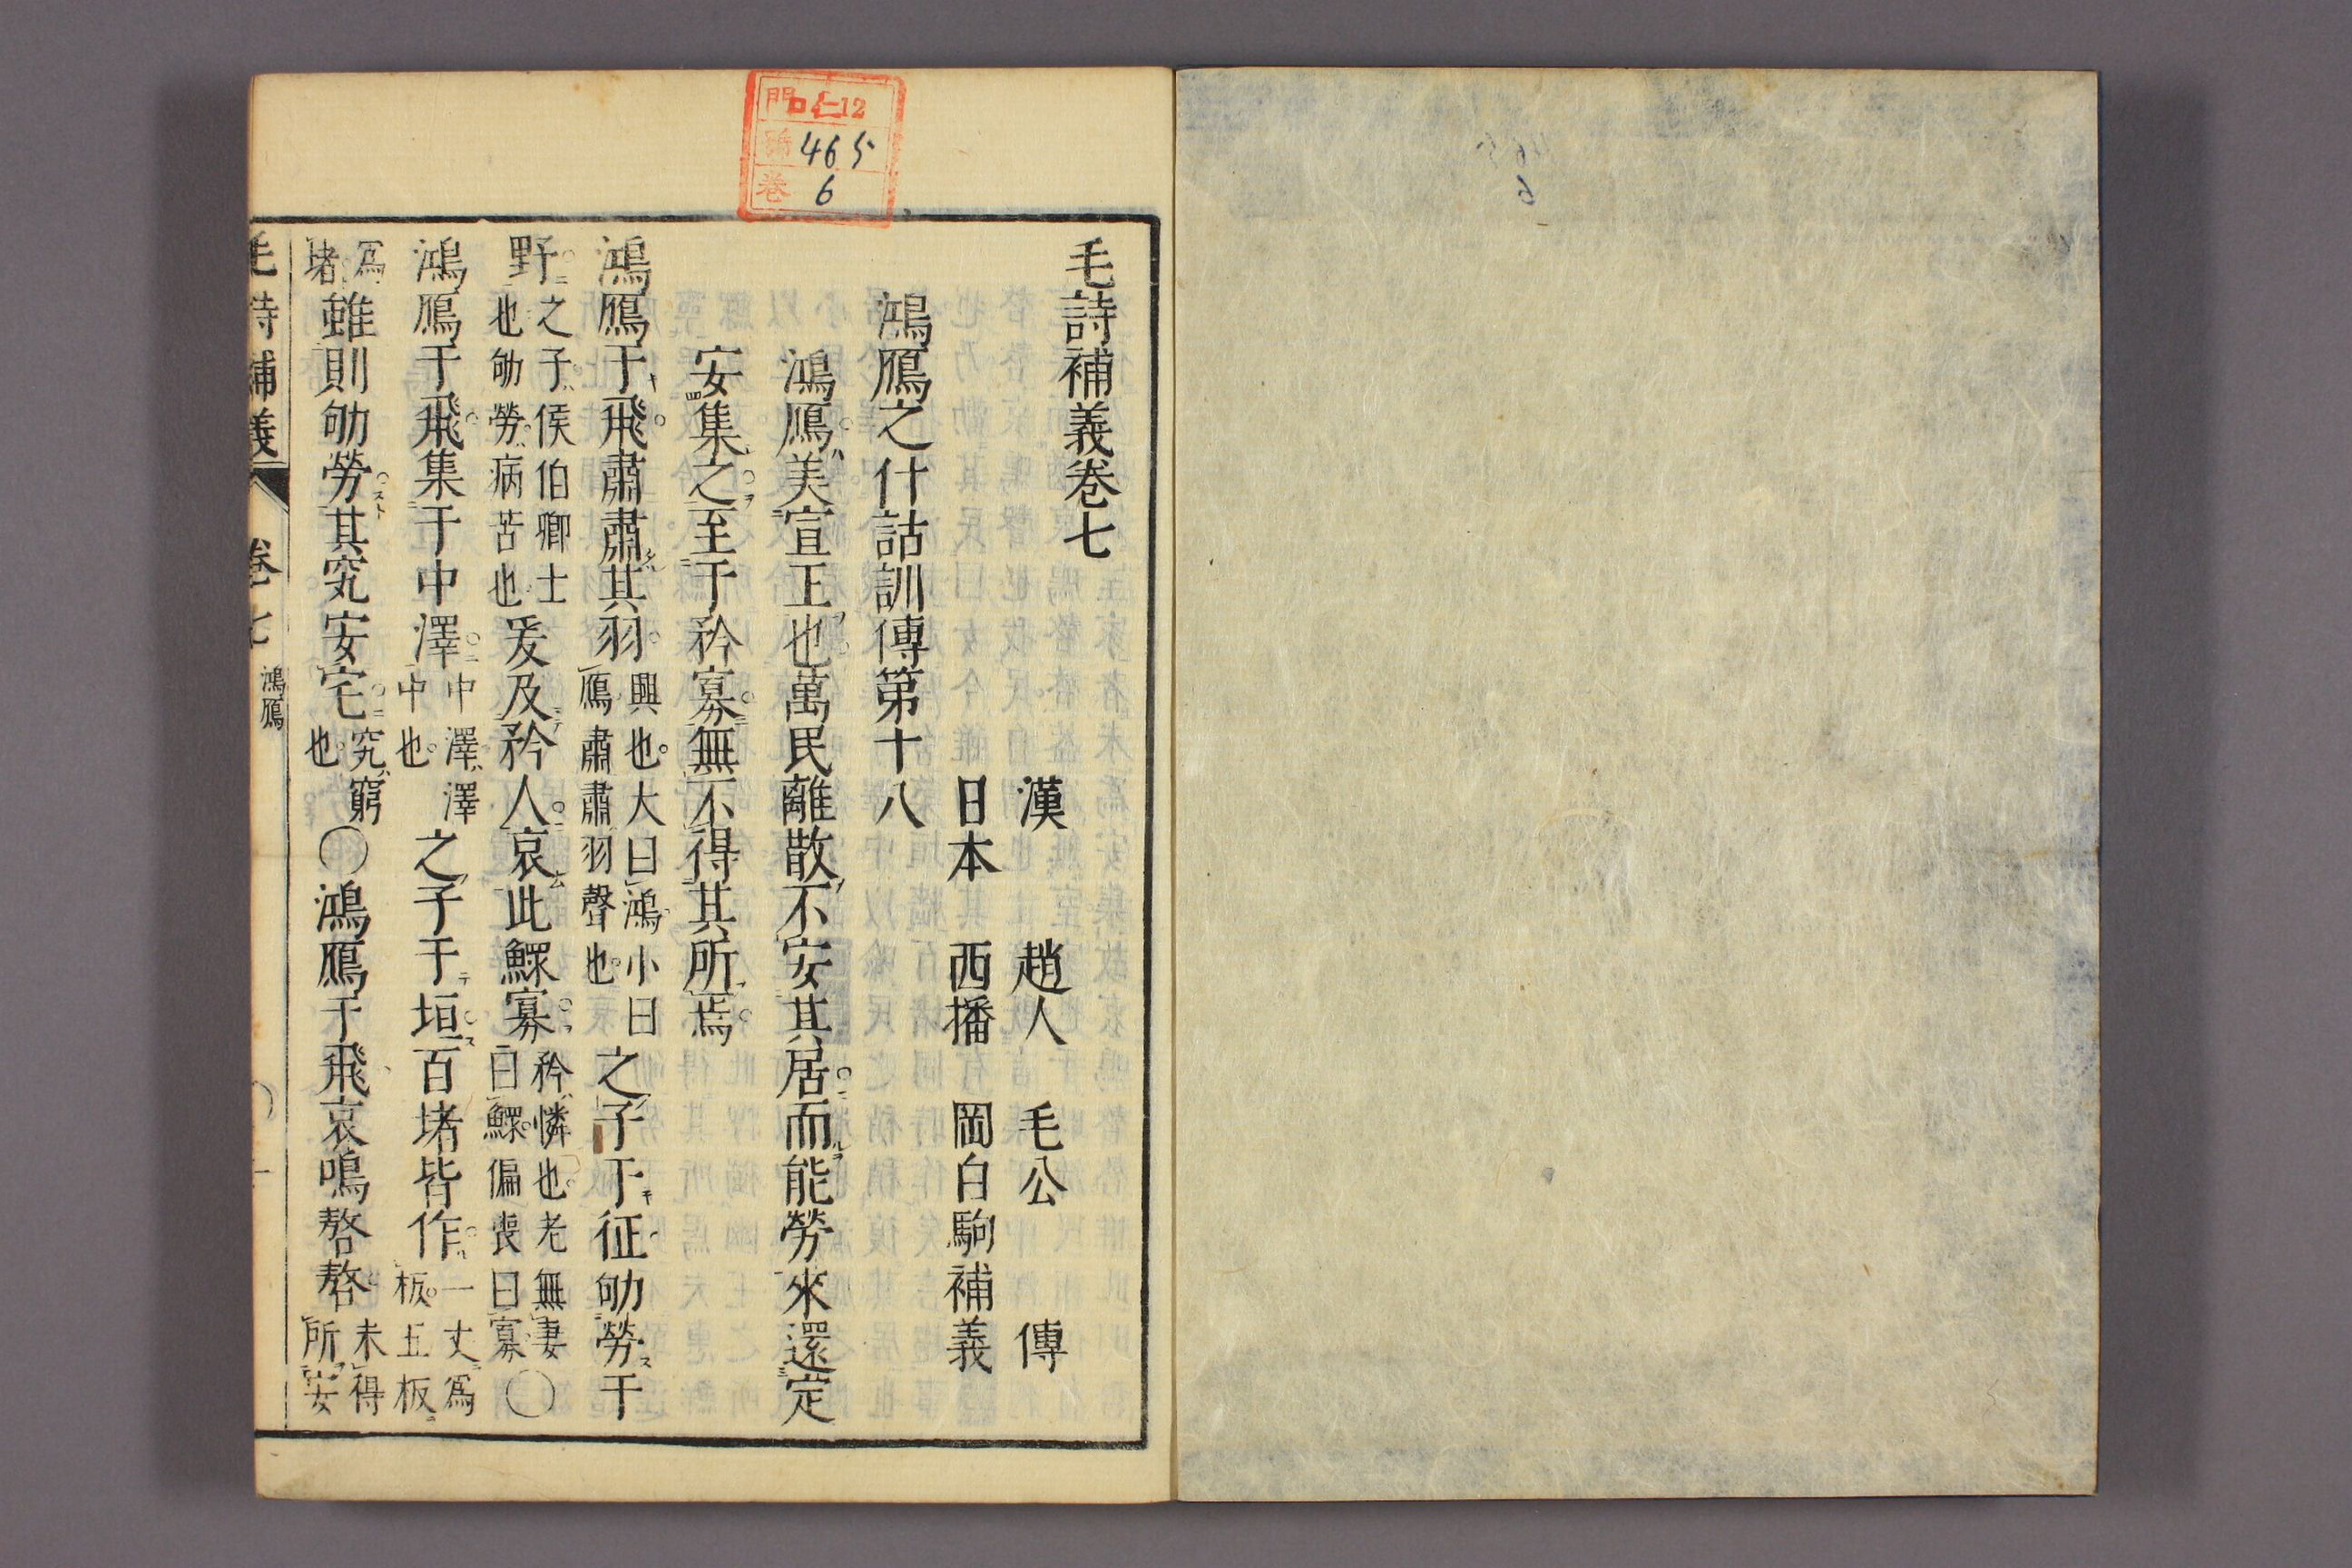 門 ロ 12
號 465
卷 6
毛詩補義卷七
漢 趙人 毛公 傳
日本 西播 岡白駒補義
鴻鴈之什詁訓傳第十八
鴻鴈美宣王也萬民離散不安其居而能勞來還定
安集之至于矜寡無不得其所焉
鴻鴈于飛肅肅其羽興也大曰鴻小曰鴈肅肅羽聲也之子于征劬勞于
野之子侯伯卿士也劬勞病苦也爰及矜人哀此鰥寡矜憐也老無妻曰鰥偏喪曰寡〇
鴻鴈于飛集于中澤中澤澤中也之子于垣百堵皆作一丈爲板五板
爲堵雖則劬勞其究安宅究窮也〇鴻鴈于飛哀鳴嗸嗸未得所安
毛詩補義 卷七 鴻鴈